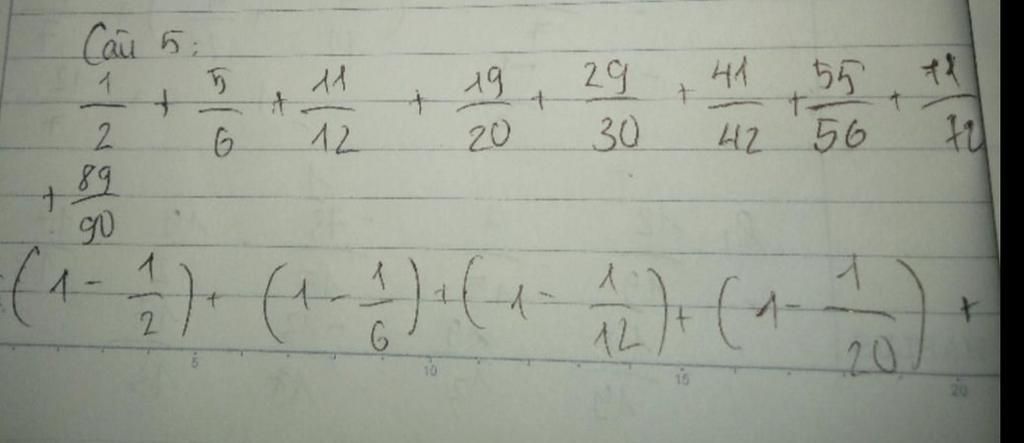 Câu 5:
1/2 + 5/6 + 11/12 + 19/20 + 29/30 + 41/42 + 55/56 + 71/72
+ 89/90
(1 - 1/2) + (1 - 1/6) + (1 - 1/12) + (1 - 1/20) +
5 10 15 20